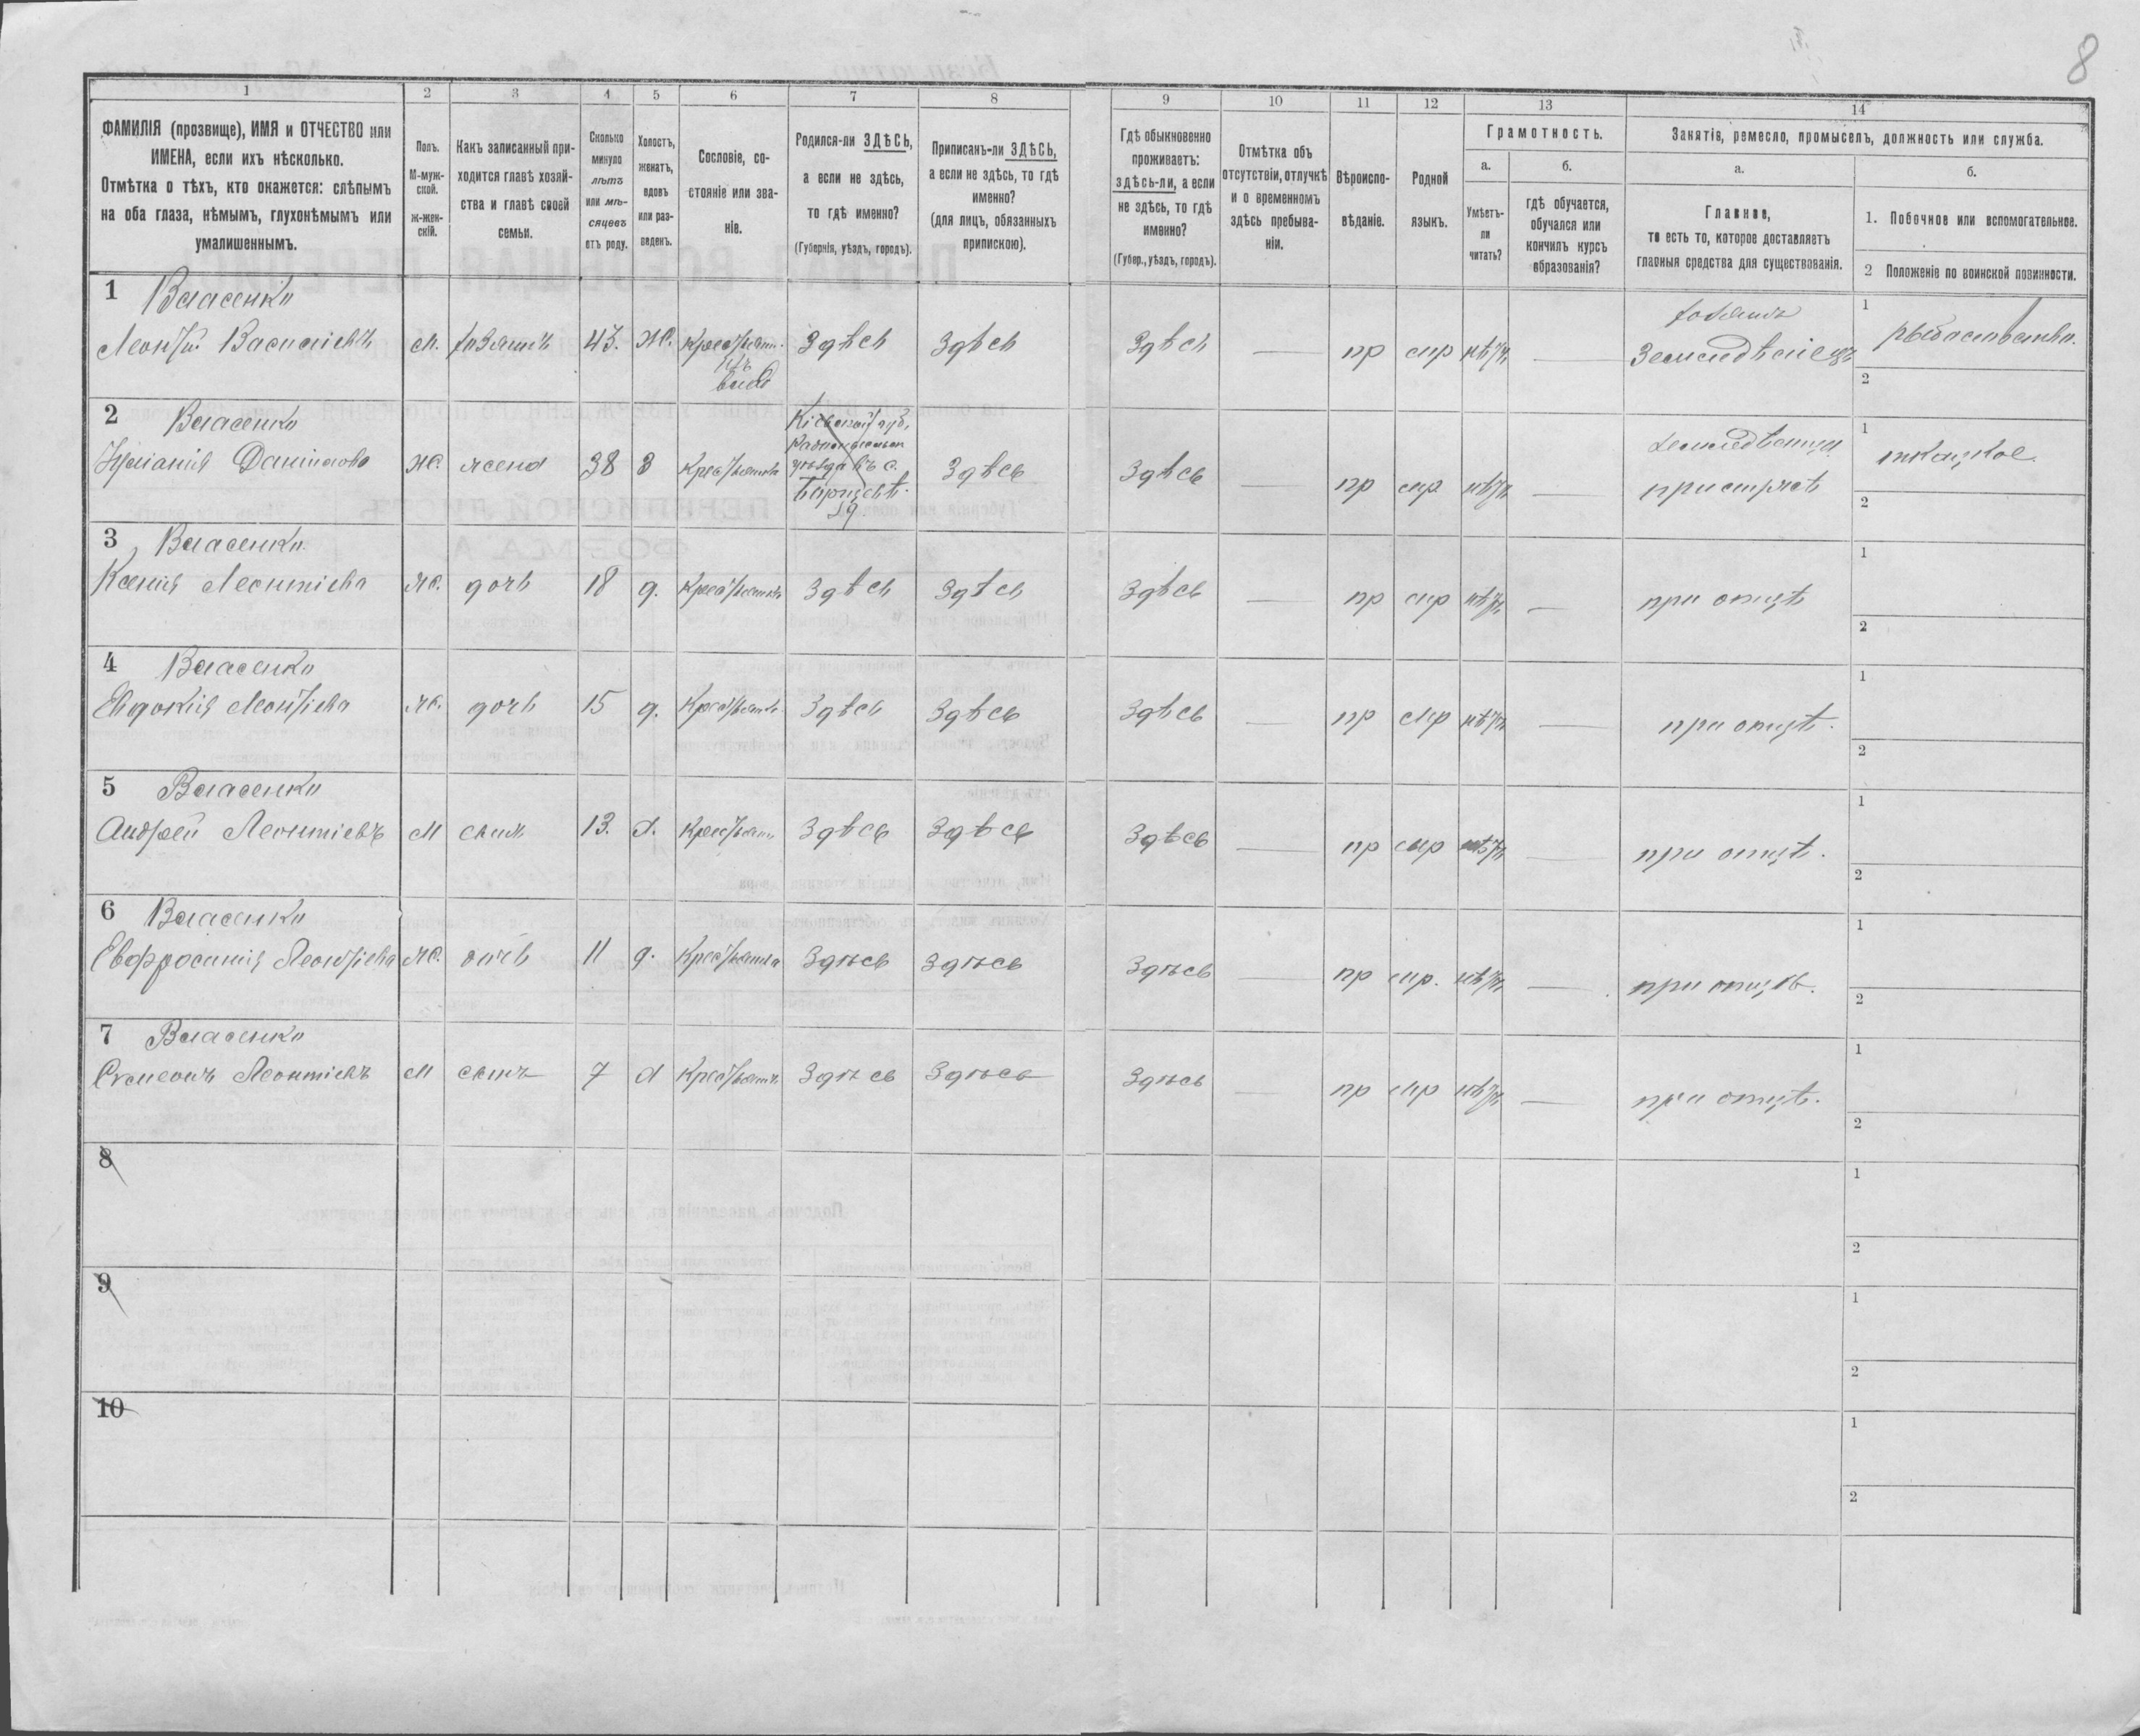 8
1
2
3
4
5
6
7
8
9
10
11
12
13
14
ФАМИЛІЯ (прозвище), ИМЯ и ОТЧЕСТВО или
ИМЕНА, если ихъ нѣсколько.
Отмѣтка о тѣхъ, кто окажется: слѣпымъ
на оба глаза, нѣмымъ, глухонѣмымъ или
умалишеннымъ.
Полъ.
М-муж-
ской.
ж-жен-
скій.
Какъ записанный при-
ходится главѣ хозяй-
ства и главѣ своей
семьи.
Сколько
минуло
лѣтъ
или мѣ-
сяцевъ
отъ роду.
Холостъ,
женатъ,
вдовъ
или раз-
веденъ.
Сословіе, со-
стояніе или зва-
ніе.
Родился-ли ЗДѢСЬ,
а если не здѣсь,
то гдѣ именно?
(Губернія, уѣздъ, городъ).
Приписанъ-ли ЗДѢСЬ,
а если не здѣсь, то гдѣ
именно?
(для лицъ, обязанныхъ
припискою).
Гдѣ обыкновенно
проживаетъ:
здѣсь-ли, а если
не здѣсь, то гдѣ
именно?
(Губер., уѣздъ, городъ).
Отмѣтка объ
отсутствіи, отлучкѣ
и о временномъ
здѣсь пребыва-
ніи.
Вѣроиспо-
вѣданіе.
Родной
языкъ.
Грамотность.
а.
Умѣетъ-
ли
читать?
б.
гдѣ обучается,
обучался или
кончилъ курсъ
образованія?
Занятія, ремесло, промыселъ, должность или служба.
а.
Главное,
то есть то, которое доставляетъ
главныя средства для существованія.
б.
1. Побочное или вспомогательное.
2 Положеніе по воинской повинности.
1 Власенко
Леонтій Василіевъ м. хозяинъ 43. ж. Здѣсь Здѣсь Здѣсь — пр мр нѣтъ — хозяинъ
Земледѣлецъ
1 рыболовство.
2
2 Власенко
Даниилова ж. жена 38 з крестьянка
Кіевской губ.
уѣзда въ с.
Здѣсь Здѣсь — пр мр нѣтъ —
при мужѣ
1 ткацкое
2
3 Власенко
Ксенія Леонтіева ж. дочь 18 д. крестьянка Здѣсь Здѣсь Здѣсь — пр мр нѣтъ — при отцѣ
1
2
4 Власенко
Евдокія Леонтіева ж. дочь 15 д. крестьянка Здѣсь Здѣсь Здѣсь — пр мр нѣтъ — при отцѣ.
1
2
5 Власенко
Андрей Леонтіевъ м сынъ 13. х. крестьян Здѣсь Здѣсь Здѣсь — пр мр нѣтъ — при отцѣ.
1
2
6 Власенко
Евфросинія Леонтіева ж. дочь 11 д. крестьянка Здѣсь Здѣсь Здѣсь — пр мр. нѣтъ — при отцѣ.
1
2
7 Власенко
Симеонъ Леонтіевъ м сынъ 7 х крестьянъ Здѣсь Здѣсь Здѣсь — пр мр нѣтъ — при отцѣ.
1
2
8
1
2
9
1
2
10
1
2